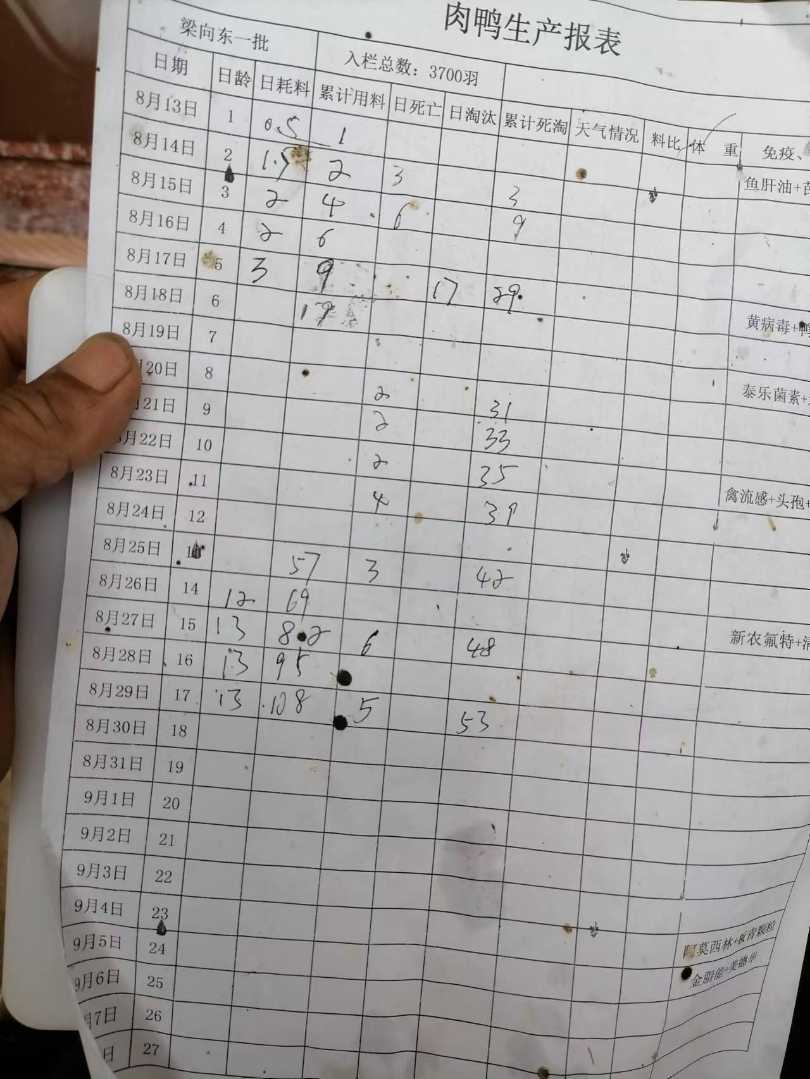 肉鸭生产报表
梁向东一批 入栏总数：3700羽
日期 日龄 日耗料 累计用料 日死亡 日淘汰 累计死淘 天气情况 料比 体 重 免疫、
8月13日 1 0.5 1
8月14日 2 1.5 2 3 3 鱼肝油+
8月15日 3 2 4 6 9
8月16日 4 2 6
8月17日 5 3 9 17 29
8月18日 6 黄病毒+鸭
8月19日 7
20日 8 2 31 泰乐菌素+
21日 9 2 33
8月22日 10 2 35
8月23日 11 4 39 禽流感+头孢+
8月24日 12
8月25日 57 3 42
8月26日 14 12 69
8月27日 15 13 82 6 48 新农氟特+
8月28日 16 13 95
8月29日 17 13 108 5 53
8月30日 18
8月31日 19
9月1日 20
9月2日 21
9月3日 22
9月4日 23
9月5日 24 莫西林+
9月6日 25
月7日 26
日 27